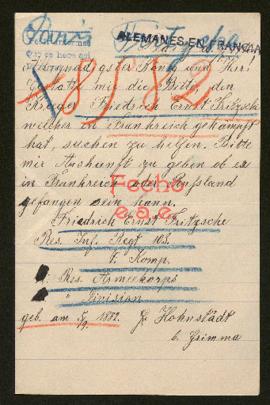 Paris
Fritzsche
ALEMANES EN FRANCIA
Allergnädigster König und Herr!
Gestatte mir die Bitte, den
Krieger Friedrich Ernst Fritzsche
welcher in Frankreich gekämpft
hat, suchen zu helfen. Bitte
mir Auskunft zu geben ob er
in Frankreich oder Rußland
gefangen sein kann.
Fecho
Friedrich Ernst Fritzsche
Res. Inf. Regt 103.
7. Komp.
Res. Armeekorps
" Division
geb. am 1882. Hohnstädt
b. Grimma